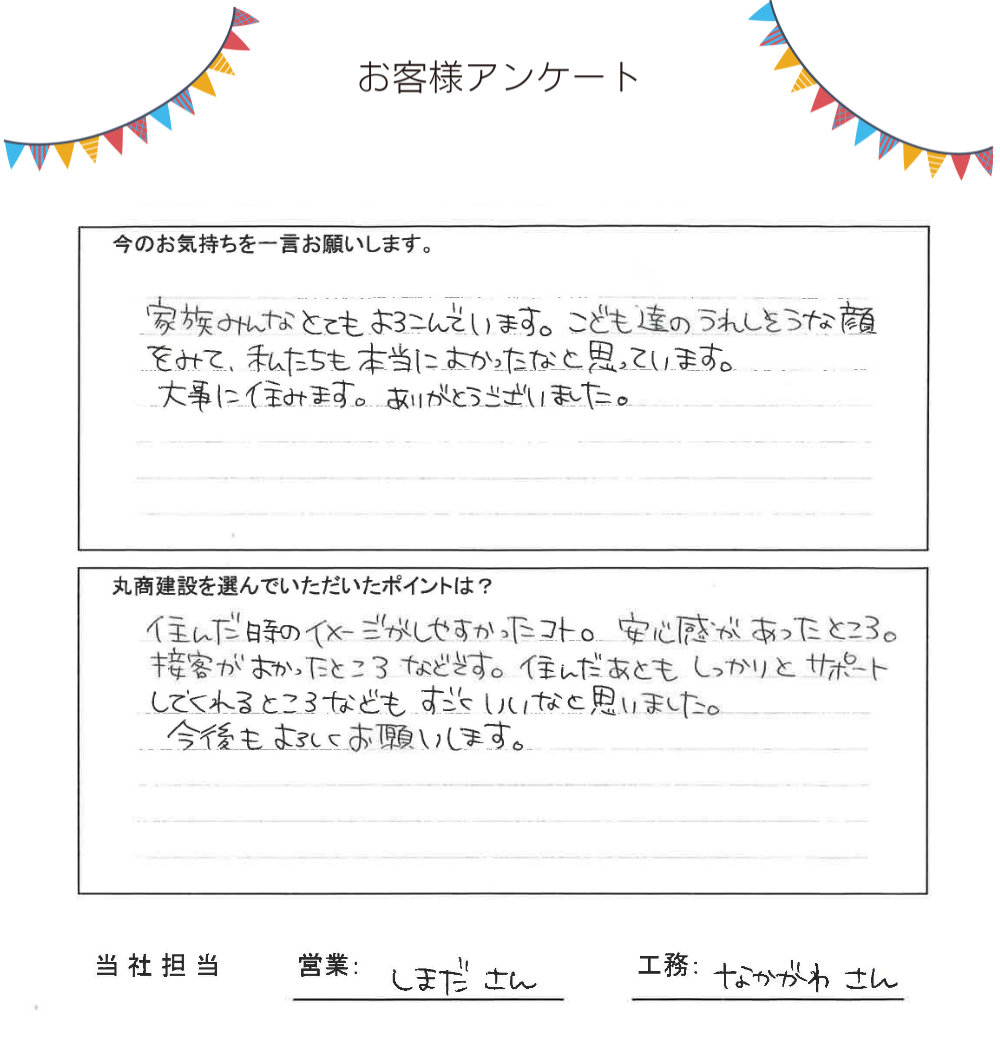 お客様アンケート
今のお気持ちを一言お願いします。
家族みんなとてもよろこんでいます。こども達のうれしそうな顔
をみて、私たちも本当によかったなと思っています。
大事に住みます。ありがとうございました。
丸商建設を選んでいただいたポイントは？
住んだ時のイメージがしやすかったコト。安心感があったところ。
接客がよかったところなどです。住んだあともしっかりとサポート
してくれるところなどもすごくいいなと思いました。
今後もよろしくお願いします。
当社担当 営業: しまださん 工務: なかがわさん